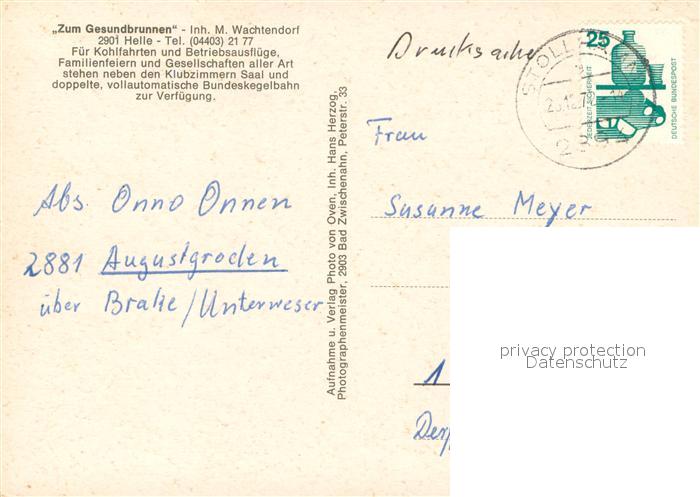 „Zum Gesundbrunnen“ - Inh. M. Wachtendorf
2901 Helle - Tel. (04403) 21 77
Für Kohlfahrten und Betriebsausflüge,
Familienfeiern und Gesellschaften aller Art
stehen neben den Klubzimmern Saal und
doppelte, vollautomatische Bundeskegelbahn
zur Verfügung.
Abs. Onno Onnen
2881 Augustgroden
über Brake/Unterweser
Aufnahme u. Verlag Photo von Oven, Inh. Hans Herzog,
Photographenmeister, 2903 Bad Zwischenahn, Peterstr. 33
Drucksache
25
JEDERZEIT SICHERHEIT
DEUTSCHE BUNDESPOST
Frau
Susanne Meyer
privacy protection
Datenschutz
1